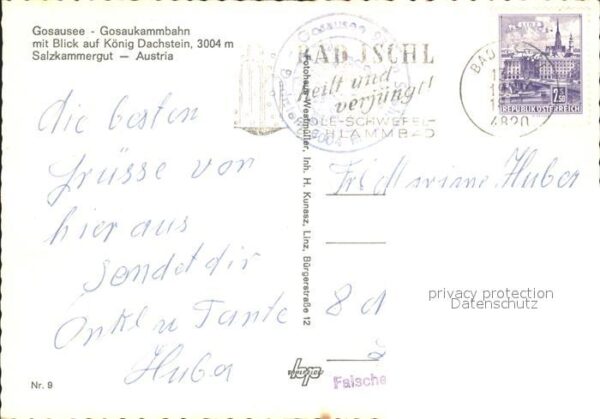 Gosausee - Gosaukammbahn
mit Blick auf König Dachstein, 3004 m
Salzkammergut — Austria
die besten
Grüsse von
hier aus
sendet dir
Onkel u Tante
Huber
Nr. 9
Fotohaus Westmüller, Inh. H. Kunasz, Linz, Bürgerstraße 12
BAD ISCHL
heilt und
verjüngt!
SOLE-SCHWEFEL-
SCHLAMMBAD
BAD
4820
2.50
REPUBLIK ÖSTERREICH
Huber
8
privacy protection
Datenschutz
Falsche